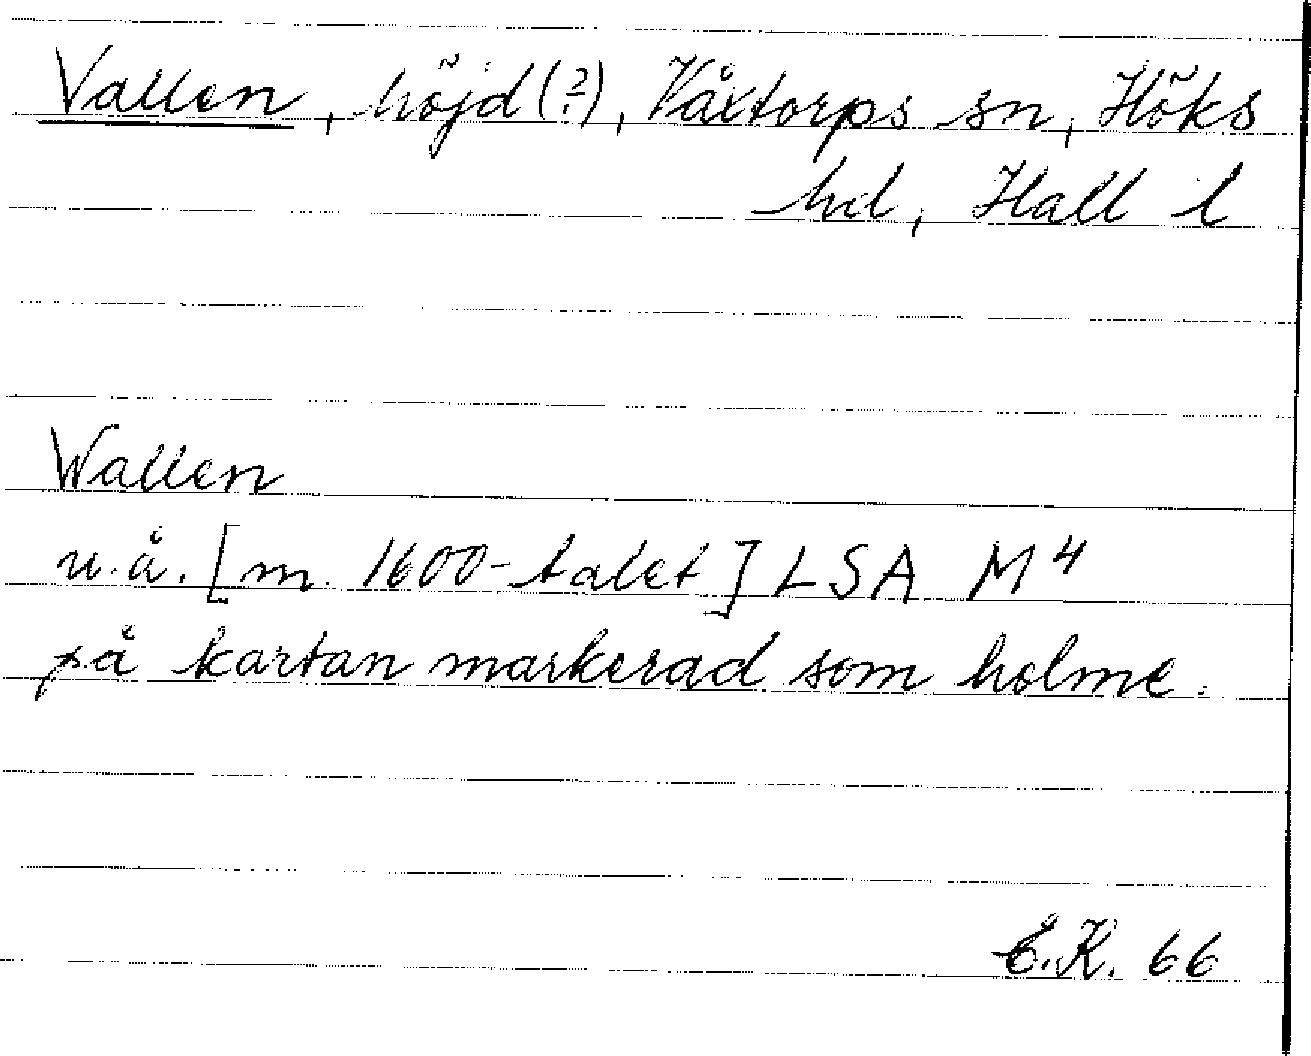 Vallen, höjd(?), Våxtorps sn, Höks
hd, Hall l
Wallen
u.å. [m. 1600-talet] LSA M4
på kartan markerad som holme.
E.K. 66